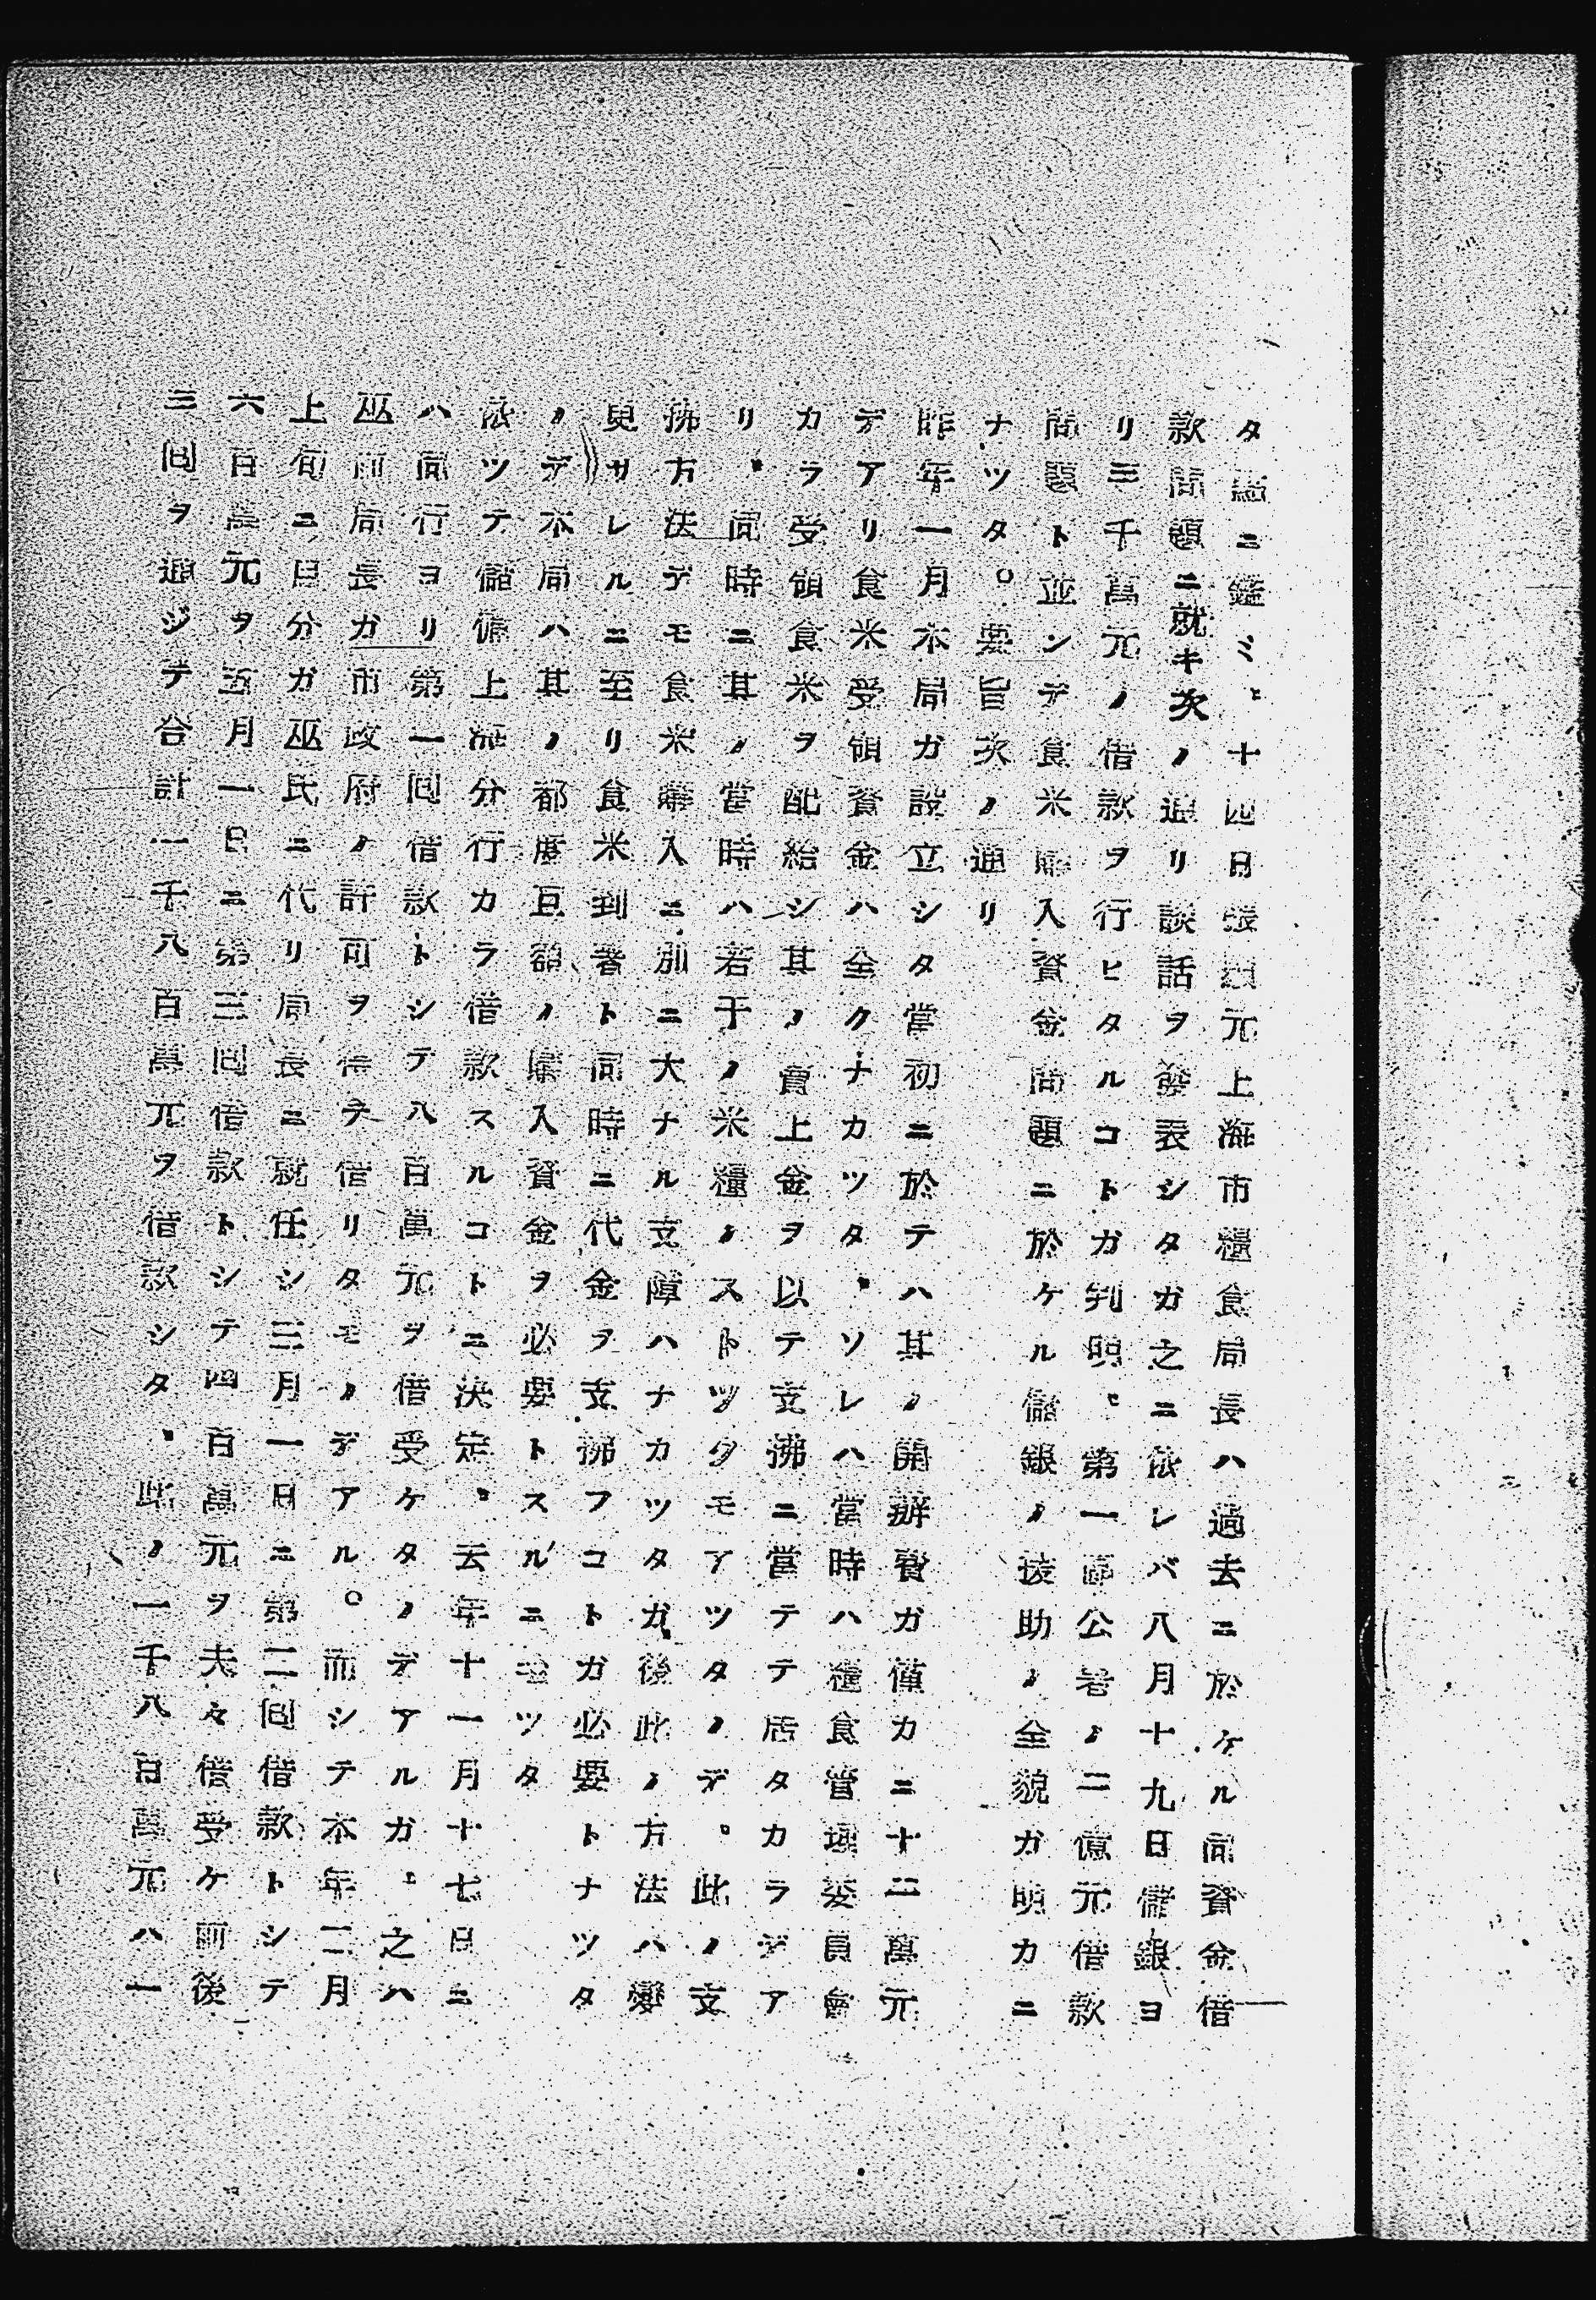 タ點ニ鑑ミ、十四日張 元上海市糧食局長ハ過去ニ於ケル同資金借
款問題ニ就キ次ノ通リ談話ヲ發表シタガ之ニ依レバ八月十九日儲銀ヨ
リ三千萬元ノ借款ヲ行ヒタルコトガ判明、第一區公署ノ二億元借款
問題ト並ンデ食米購入資金問題ニ於ケル儲銀ノ援助ノ全貌ガ明カニ
ナツタ。要旨次ノ通リ
昨年一月本局ガ設立シタ當初ニ於テハ其ノ開辦費ガ僅カニ十二萬元
デアリ食米受領資金ハ全クナカツタ、ソレハ當時ハ糧食管理委員會
カラ受領食米ヲ配給シ其ノ賣上金ヲ以テ支拂ニ當テテ居タカラデア
リ、同時ニ其ノ當時ハ若干ノ米糧ノストツクモアツタノデ。此ノ支
拂方法デモ食米購入ニ別ニ大ナル支障ハナカツタガ後此ノ方法ハ變
更サレルニ至リ食米到著ト同時ニ代金ヲ支拂フコトガ必要トナツタ
ノデ本局ハ其ノ都度巨額ノ購入資金ヲ必要トスルニ至ツタ
依ツテ儲備上海分行カラ借款スルコトニ決定、去年十一月十七日ニ
ハ同行ヨリ第一囘借款トシテ八百萬元ヲ借受ケタノデアルガ、之ハ
巫前局長ガ市政府ノ許可ヲ得テ借リタモノデアル。而シテ本年二月
上旬ニ自分ガ巫氏ニ代リ局長ニ就任シ三月一日ニ第二囘借款トシテ
六百萬元ヲ五月一日ニ第三囘借款トシテ四百萬元ヲ夫々借受ケ前後
三囘ヲ通ジテ合計一千八百萬元ヲ借款シタ、此ノ一千八百萬元ハ一